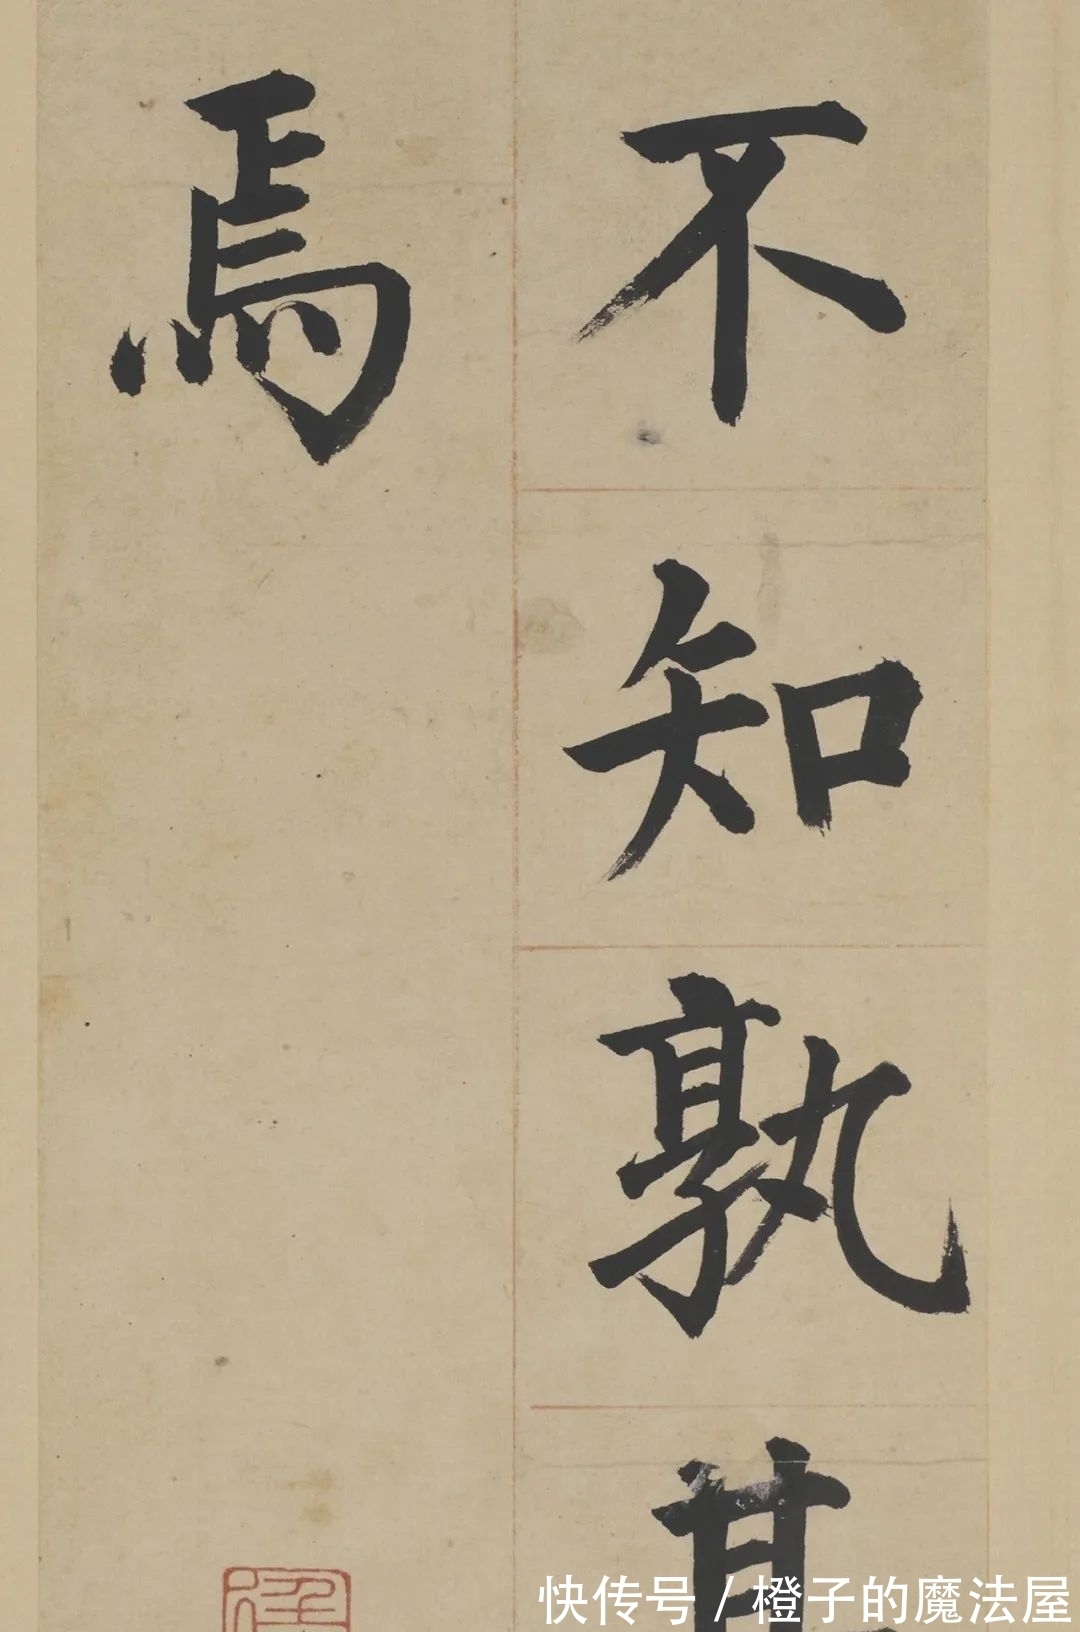 不知孰甚
焉
快传号 / 橙子的魔法屋